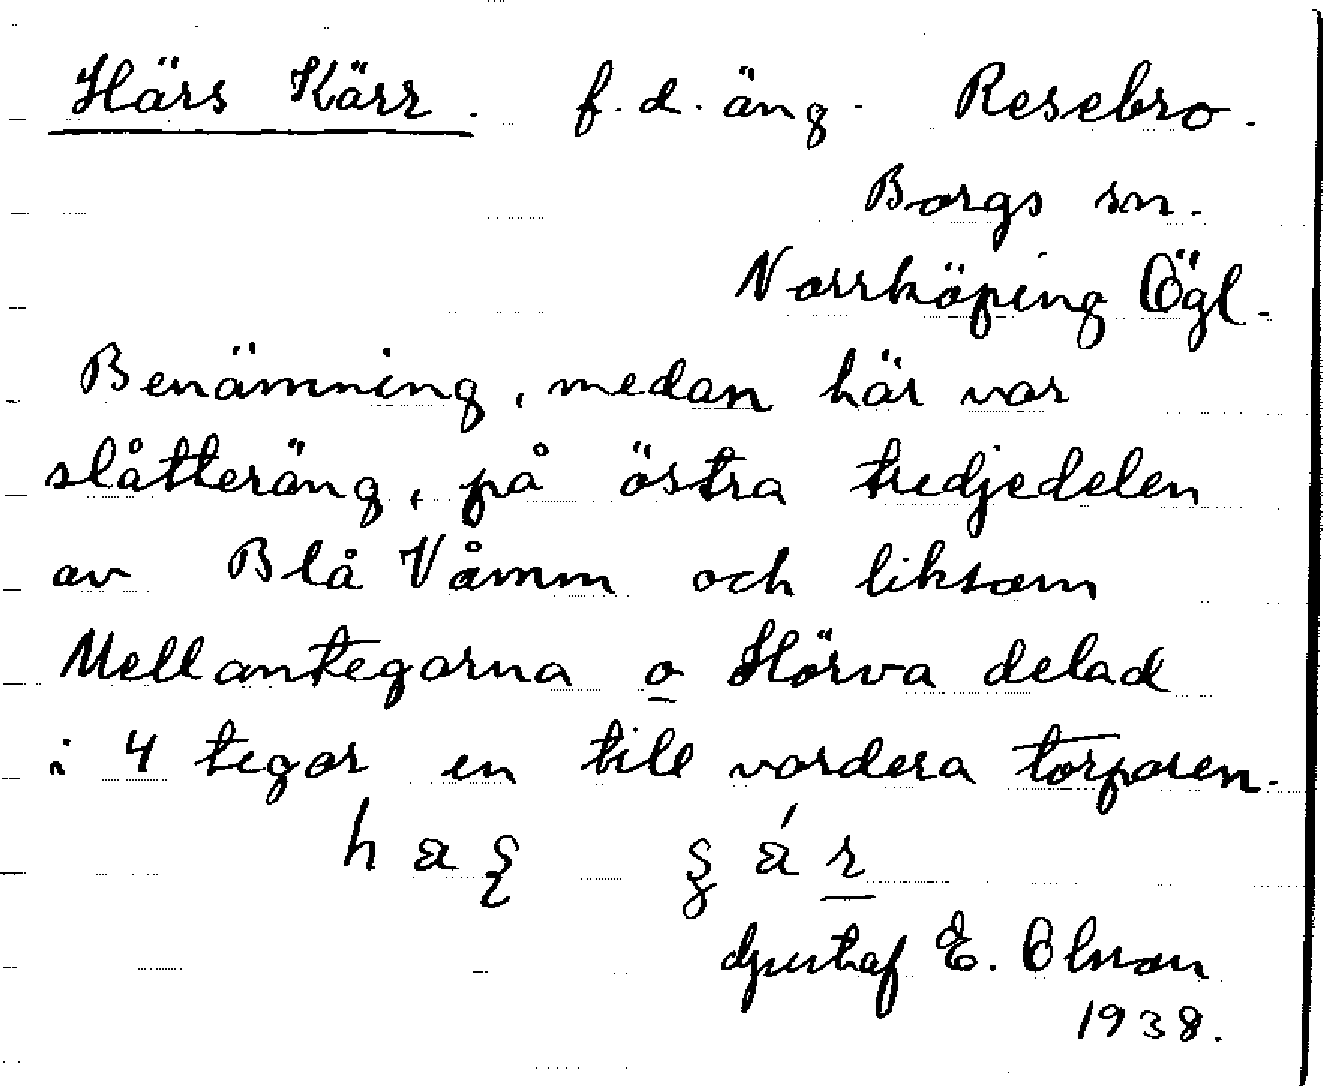 Härs Kärr. f.d. äng. Resebro.
Borgs sn.
Norrköping Ögl.
Benämning, medan här var
slåtteräng, på östra tredjedelen
av Blå Våmm och liksom
Mellantegarna o Hörva delad
i 4 tegar en till vardera torparen.
Gustaf E. Olsson
1938.